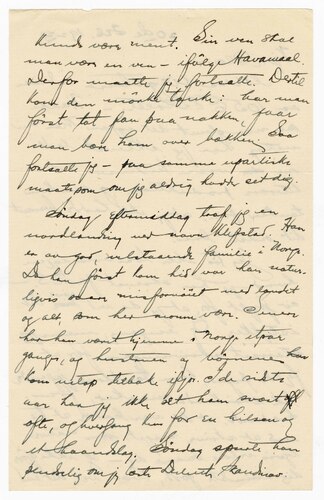 kunde være ment. Sin ven skal
man være en ven – ifölge Havamaal.
Derfor maatte jeg fortsatte. Dertil
kom den mörke tanke: har man
först tat fan paa nakken, faar
man bære ham over bakken. Saa
fortsatte jeg – paa samme upartiske
maate som om jeg aldrig hadde set dig.
Söndag eftermiddag traf jeg en
nordlænding ved navn Klefstad. Han
er av god, velstaaende familie i Norge.
Da han först kom hid var han natur-
ligvis svært misfornöiet med landet
og alt som her norsk var. Senere
har han været hjemme i Norge et par
gange, og hustruen og börnene han
kom netop tilbake ifjor. I de sidste
aar har jeg ikke set ham svært
ofte, og hvergang kun for en hilsen og
et haandslag. Söndag spurte han
pludselig om jeg læste Decorah